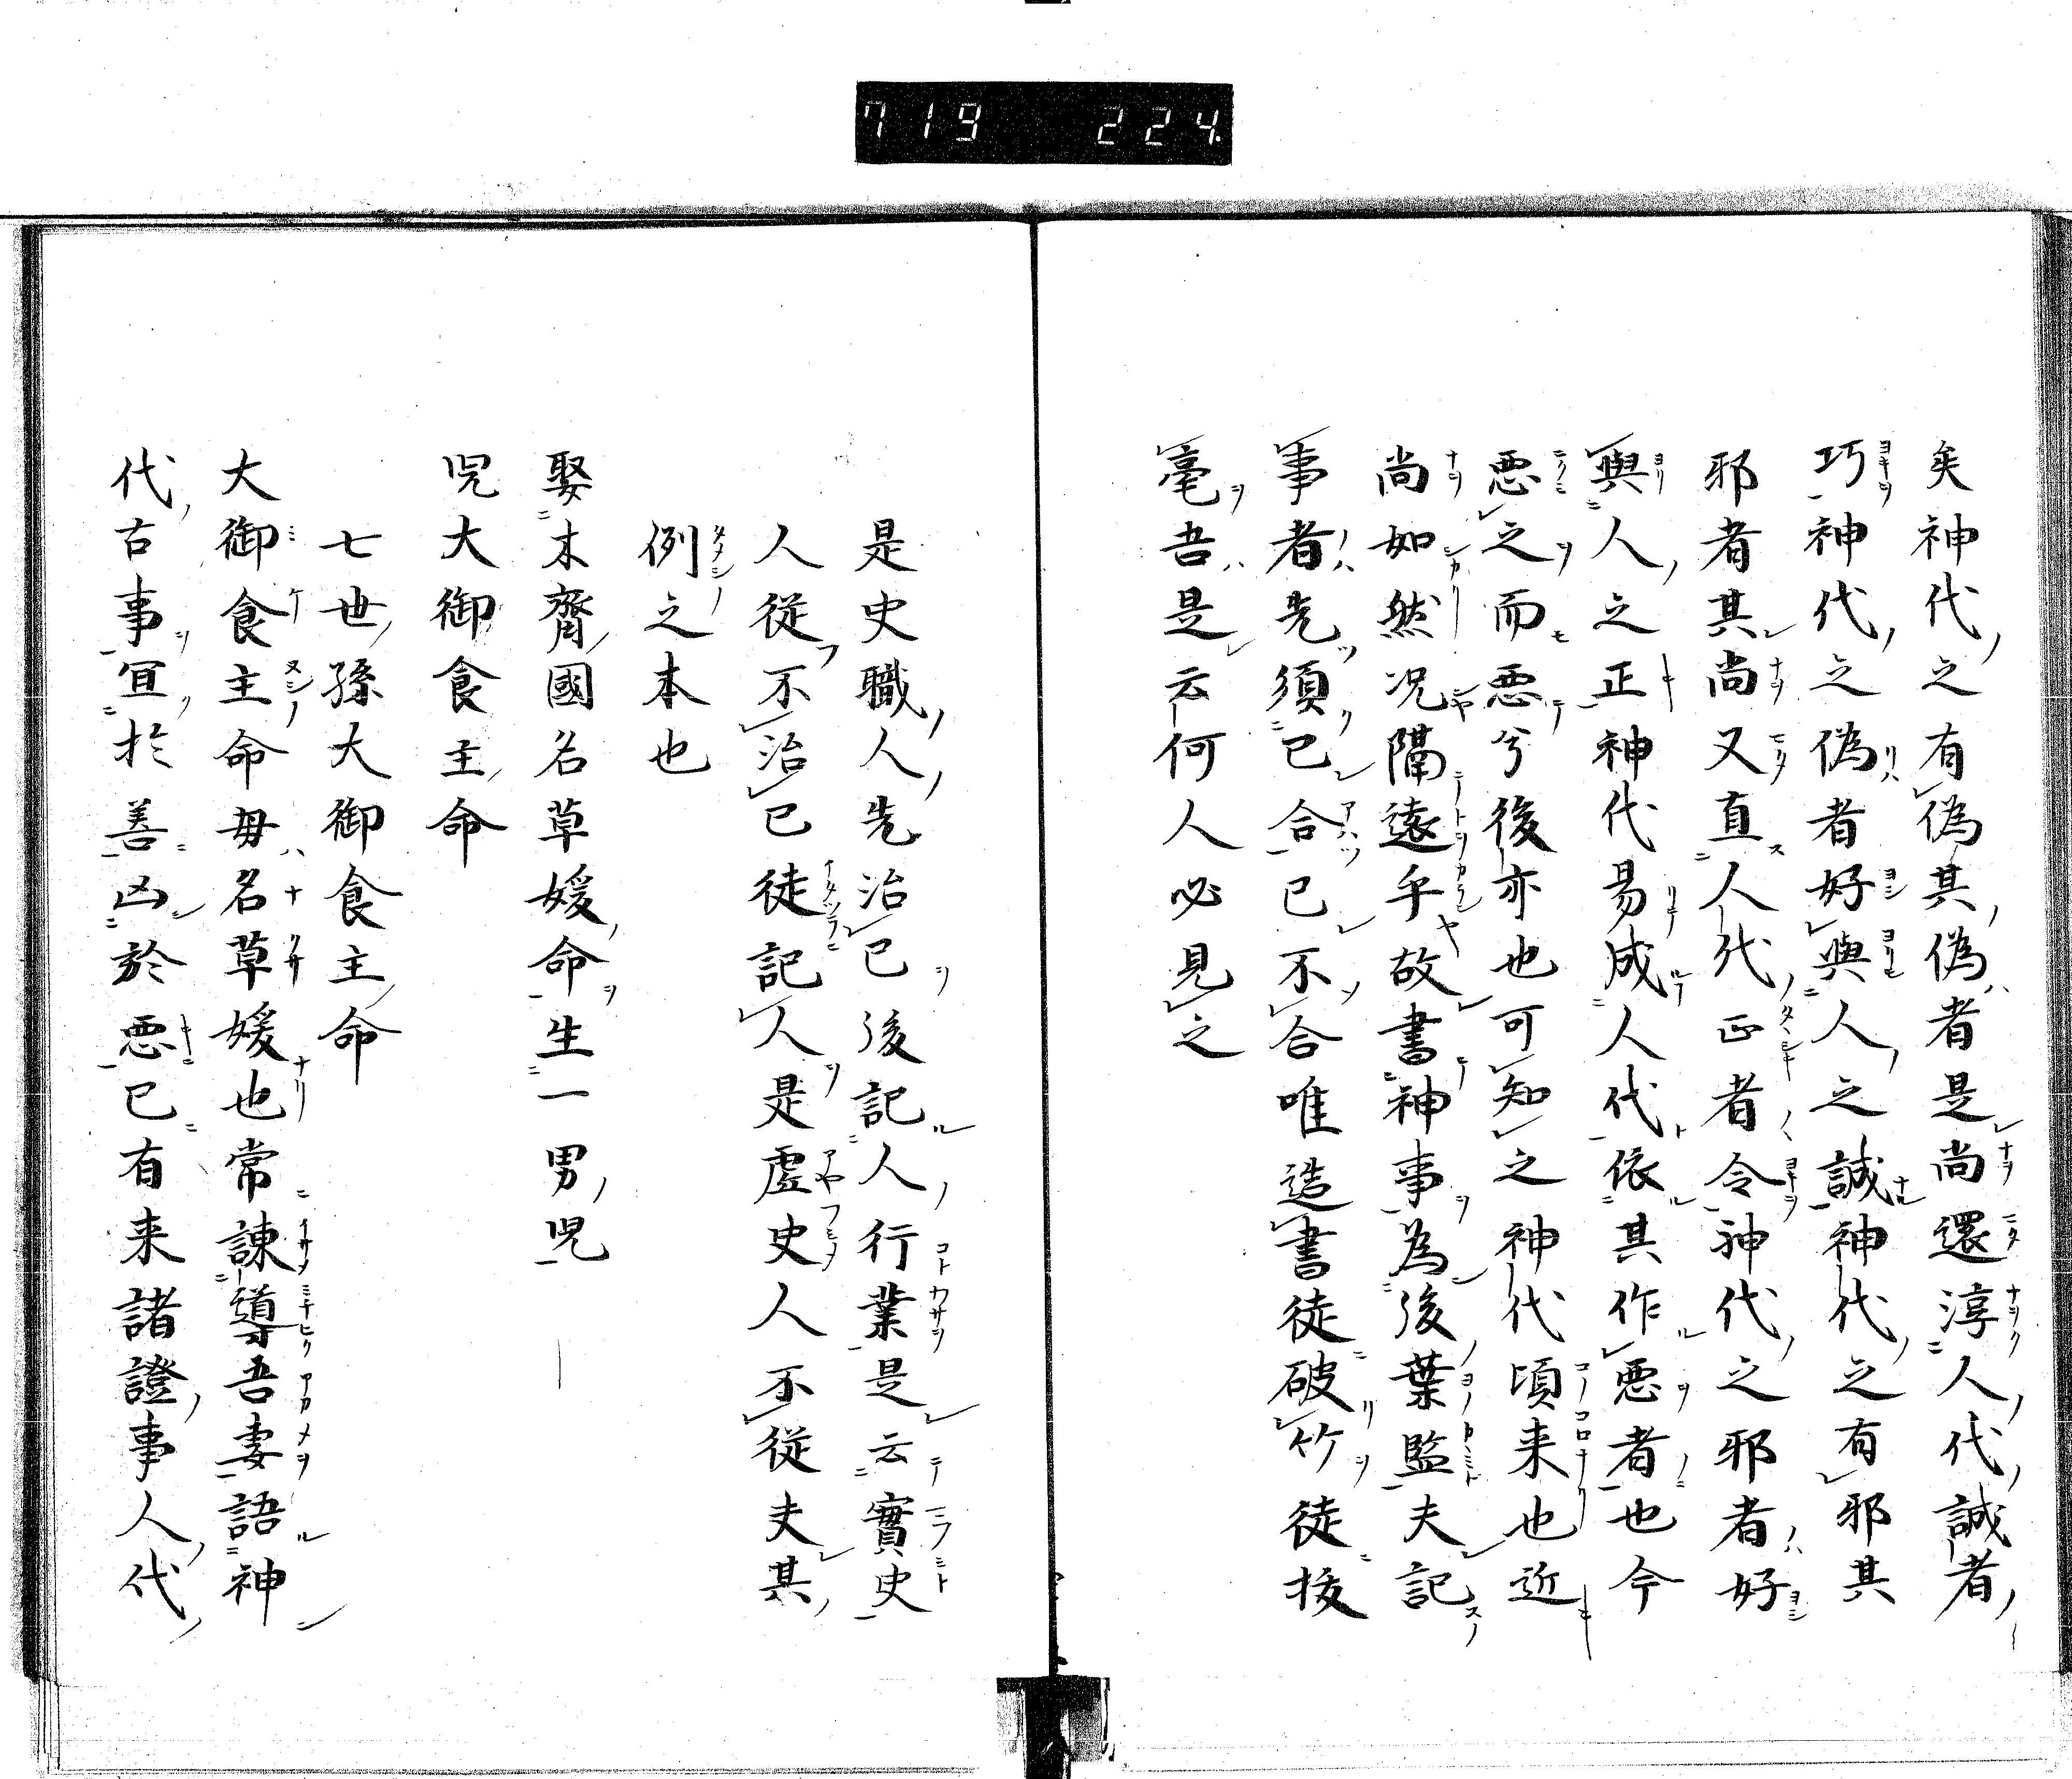 719 224.
矣神代之有偽其偽者是尚還淳人代誠者
巧神代之偽者好與人之誠神代之有邪其
邪者其尚又直人代正者令神代之邪者好
與人之正神代易成人代依其作悪者也今
悪之而悪兮後亦也可知之神代頃来也近
尚如然况隔遠乎故書神事為後葉監夫記
事者先須已合已不合唯造書徒破竹徒捘
毫吾是云何人必見之
是史職人先治已後記人行業是云實史
人従不治已徒記人是虚史人不従夫其
例之本也
娶木齊國名草媛命生一男児
児大御食主命
七世孫大御食主命
大御食主命母名草媛也常諫導吾妻語神
代古事宜於善凶於悪已有来諸證事人代